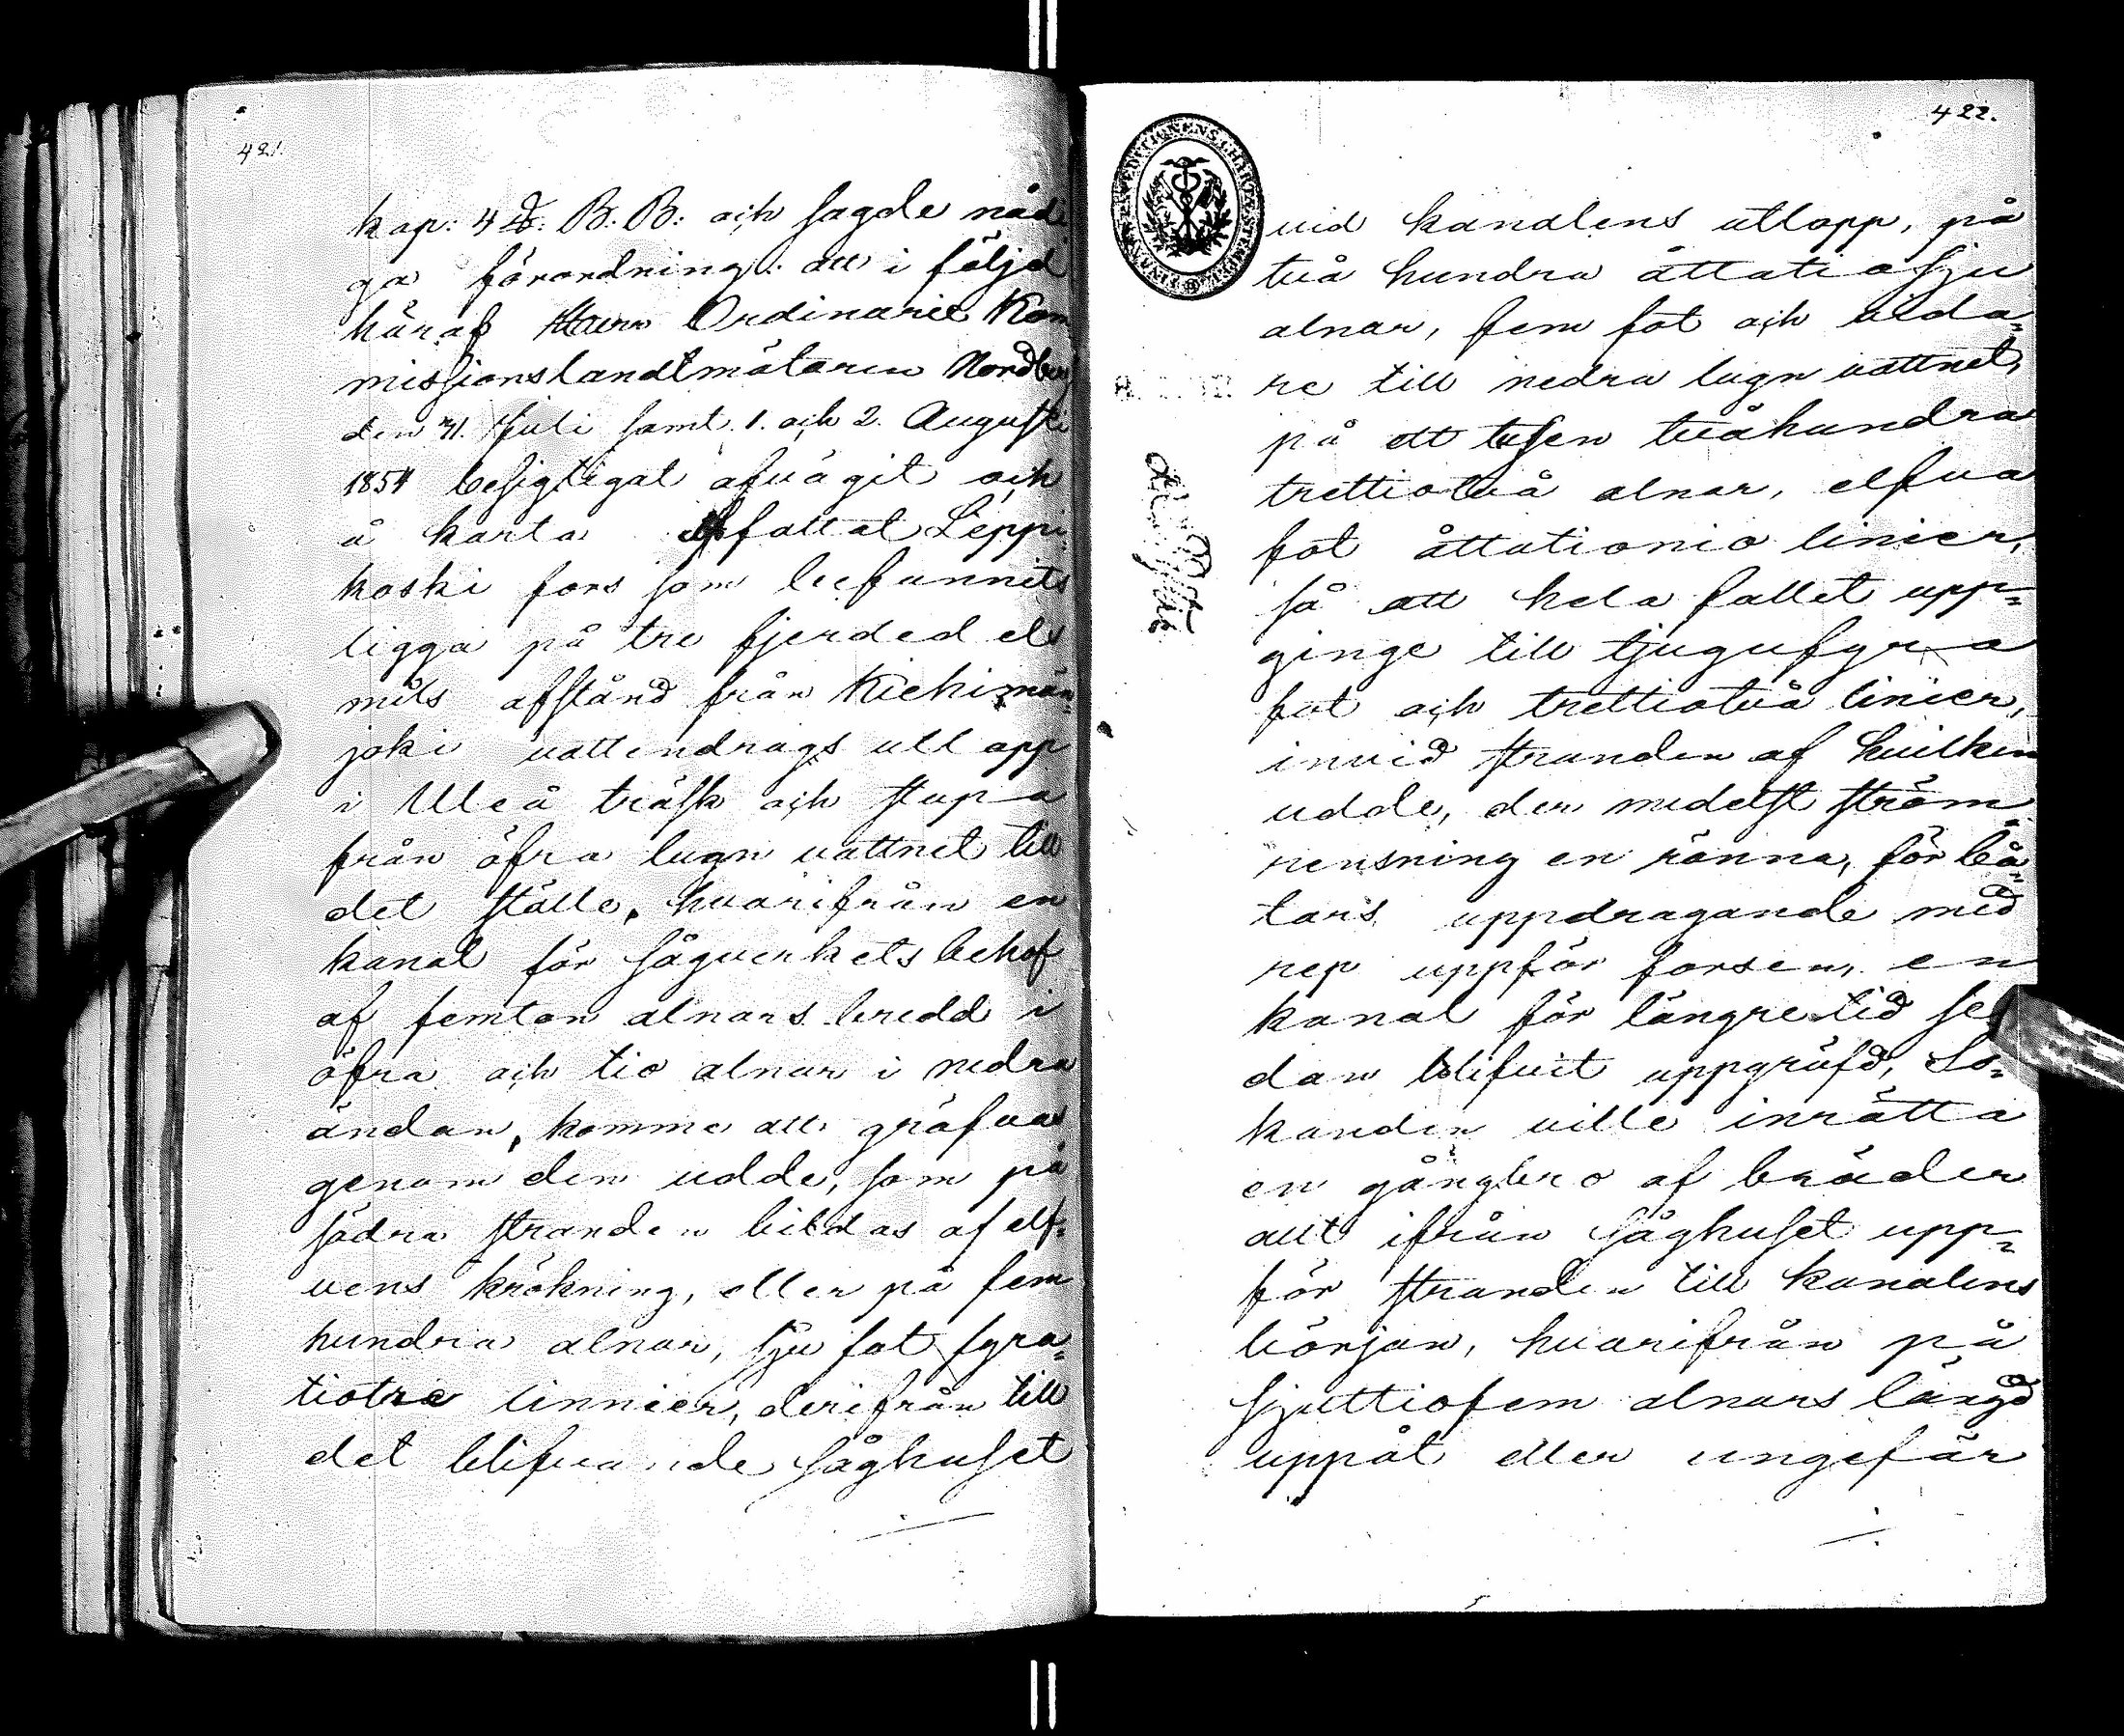 421.
kap: 4 §: B. B: och sagde nådi
ga förordning: att i följd
häraf Herr Ordinarie Kom
missionslandtmätaren Nordberg
den 31. Juli samt 1. och 2. Augusti
1854 besigtigat afvägit och
å karta affattat Leppi
koski fors som befunnits
ligga på tre fjerdedels
mils afstånd från Kiehimän-
joki vattendrags utlopp
i Uleå träsk och stupa
från öfra lugn vattnet till
det ställe, hvarifrån en
kanal för sågverkets behof
af femton alnars bredd i
öfra och tio alnar i nedra
ändan, komme att gräfvas
genom den udde, som på
södra stranden bildas af elf-
vens krökning, eller på fem
hundra alnar, sju fot fyra-
tiotre linnier, derifrån till
det blifvande såghuset
422.
vid kanalens utlopp, på
två hundra åttatiosju
alnar, fem fot och vida-
re till nedra lugn vattnet,
på ett tusen tvåhundra
trettiotvå alnar, elfva
fot åttationio linier,
så att hela fallet upp-
ginge till tjugufyra
fot och trettiotvå linier,
invid stranden af hvilken
udde, der medelst ström-
rensning en ränna, för bå-
tars uppdragande med
rep uppför forsen, en
kanal för längre tid se-
dan blifvit uppgräfd, Sö-
kanden ville inrätta
en gångbro af bräder
allt ifrån såghuset upp-
för stranden till kanalens
början, hvarifrån på
sjuttiofem alnars längd
uppåt eller ungefär